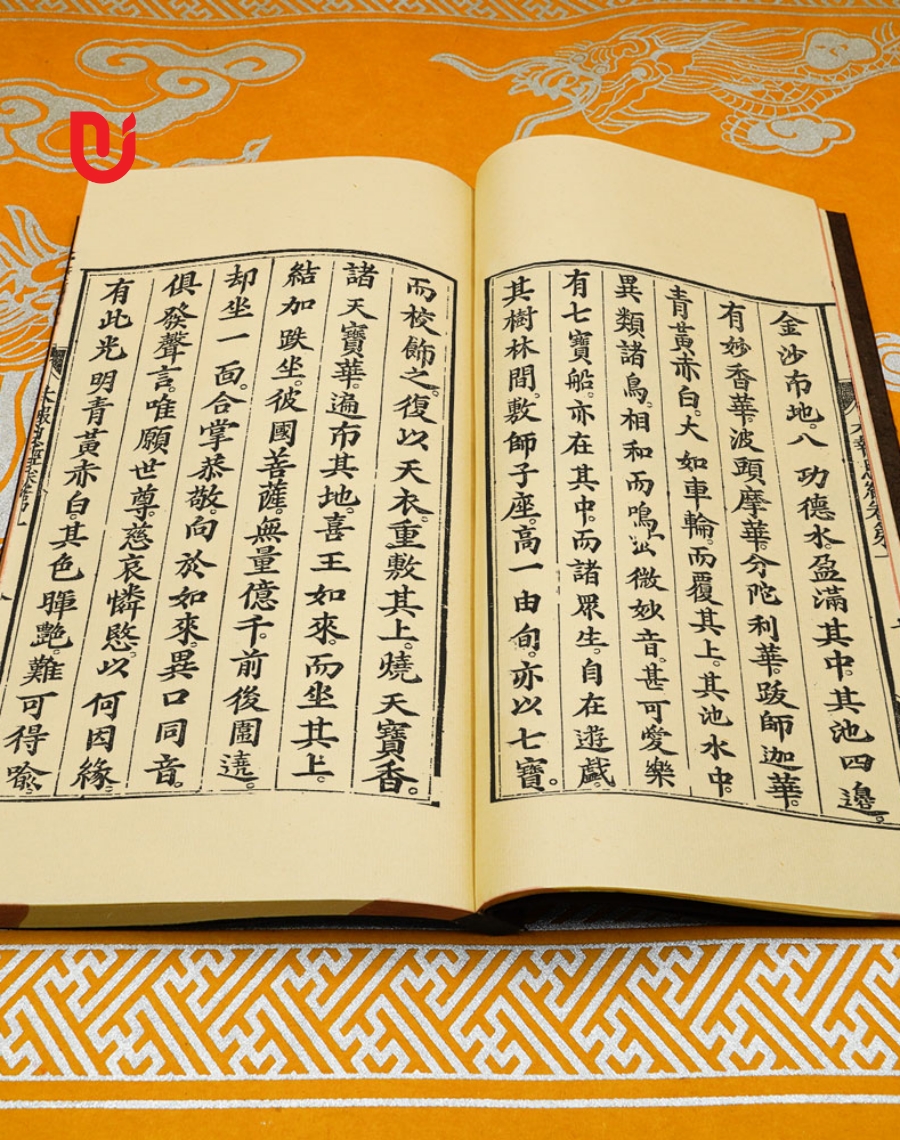 金沙布地。八功德水。盈滿其中。其池四邊。
有妙香華。波頭摩華。分陀利華。跋師迦華。
青黃赤白。大如車輪。而覆其上。其池水中。
異類諸鳥。相和而鳴。微妙音。甚可愛樂
有七寶船。亦在其中。而諸眾生。自在遊戲。
其樹林間。敷師子座。高一由旬。亦以七寶。
而校飾之。復以天衣。重敷其上。燒天寶香。
諸天寶華。遍布其地。喜王如來。而坐其上。
結加趺坐。彼國菩薩。無量億千。前後圍遶。
却坐一面。合掌恭敬。向於如來。異口同音。
俱發聲言。唯願世尊慈哀憐愍。以何因緣。
有此光明青黃赤白。其色暉艷。難可得喻。